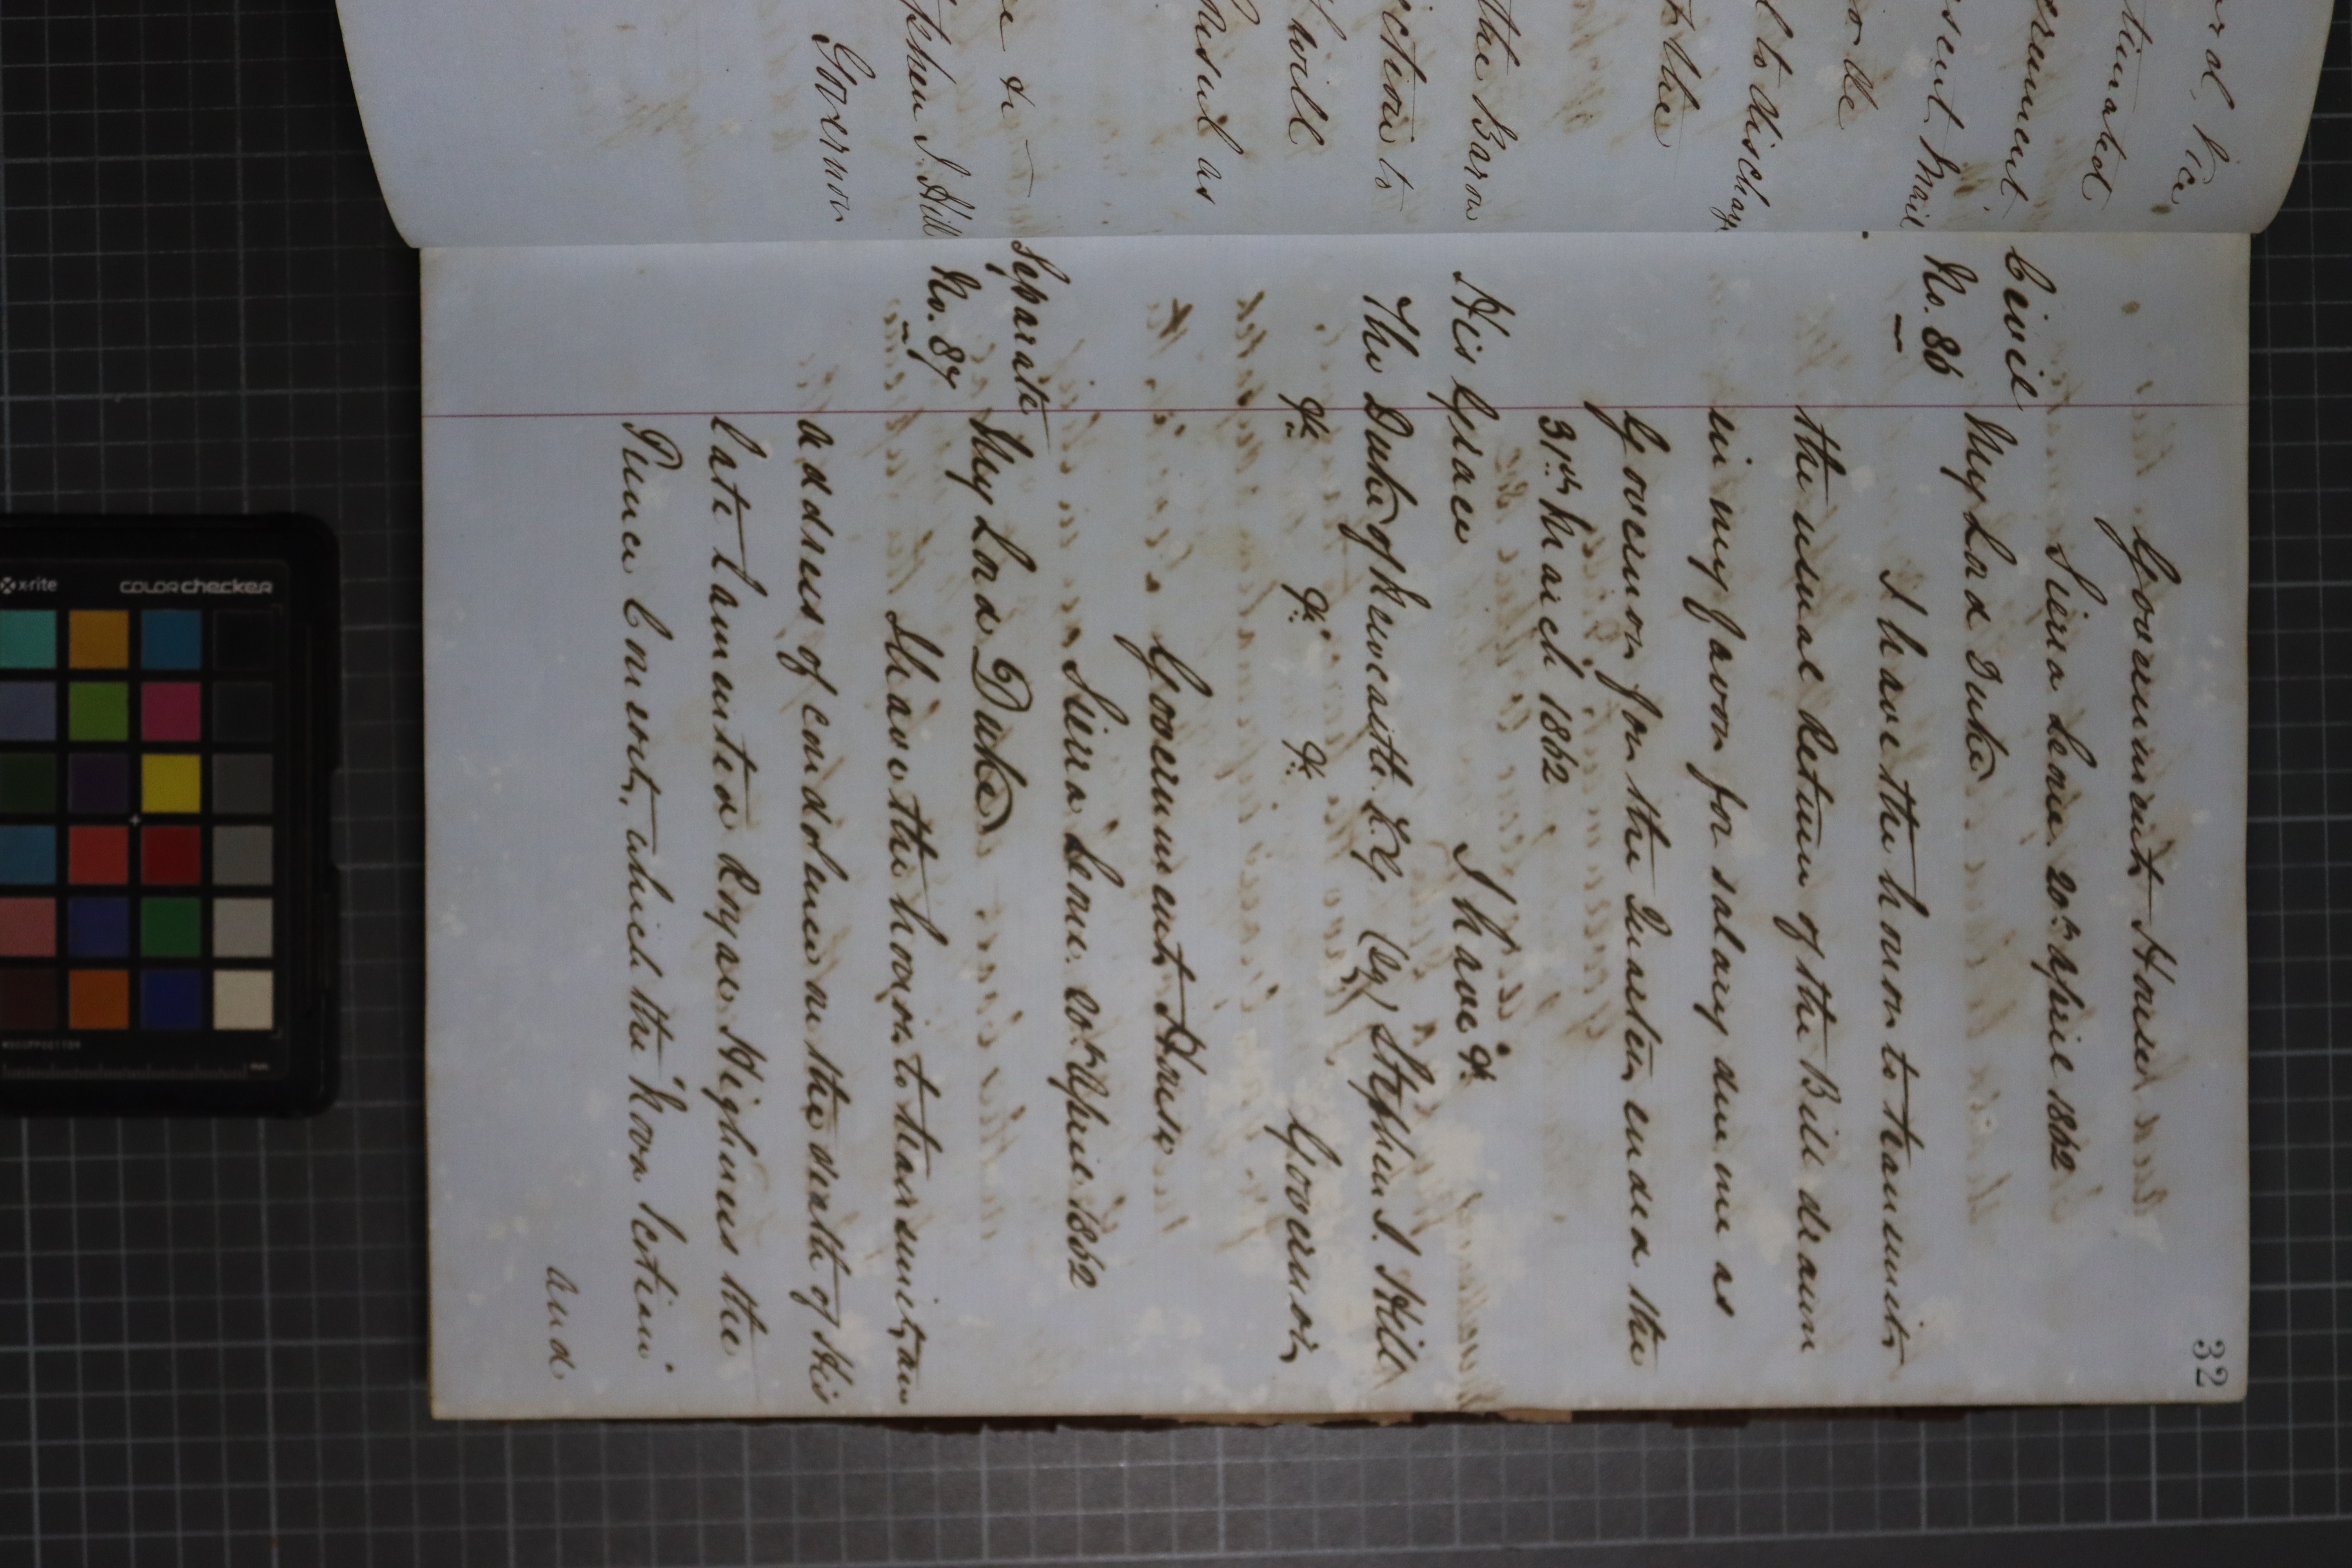 32
Government House
Sierra Leone 20th April 1862
Civil
No. 86
My Lord Duke
I have the honor to transmit
the usual Return of the Bill drawn
in my favor for salary due me as
Governor for the Quarter ended the
31st March 1862
I have &c
His Grace
The Duke of Newcastle K.G. (Sg) Stephen J. Hill
&c. &c. &c. Governor
Government House
Sierra Leone 20th April 1862
Separate
No. 87
My Lord Duke
I have the honor to transmit an
address of condolence on the death of His
late lamented Royal Highness the
Prince Consort, which the "Kroo
and
ord, Vice
ernment
sent Mail
or the
l to discharge
the
the Baron
ction to
will
as
&c
phen J. Hill
Governor
x-rite
colorchecker